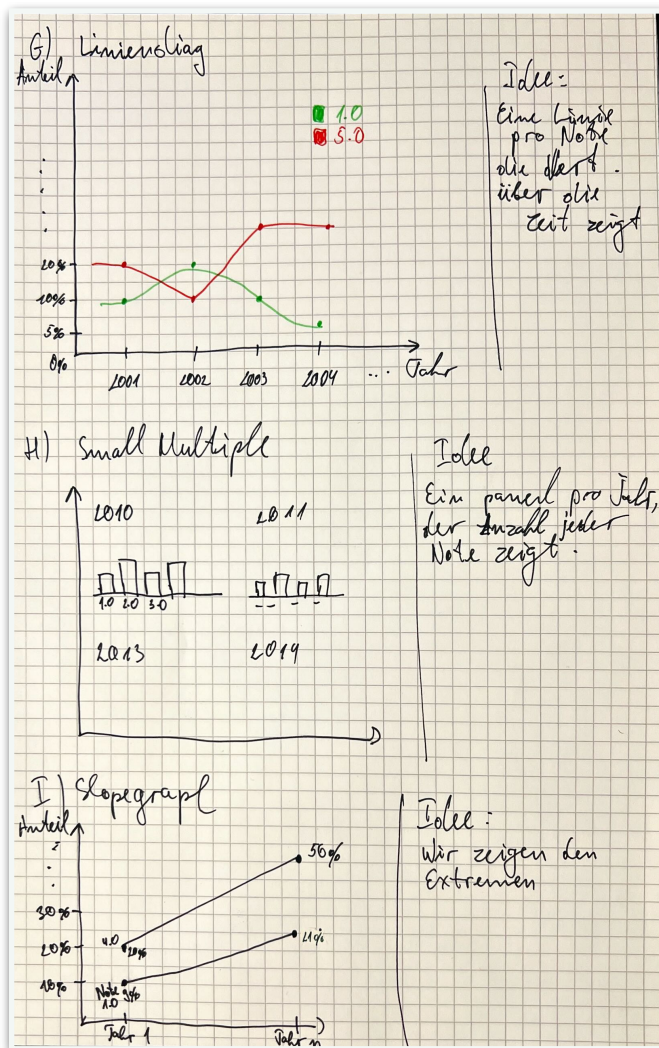 G) Liniendiag
Anteil
1.0
5.0
20%
10%
5%
0%
2001 2002 2003 2004 ... Jahr
Idee:
Eine Linie
pro Note
die
über die
Zeit zeigt
H) Small Multiple
2010 2011
1.0 2.0 3.0
2013 2014
Idee
Ein paneel pro Jahr,
der Anzahl jeder
Note zeigt.
I) Slopegraph
Anteil
30%
20%
10%
4.0 20%
50%
Note 9%
1.0
21%
Jahr 1 Jahr n
Idee:
Wir zeigen den
Extremen